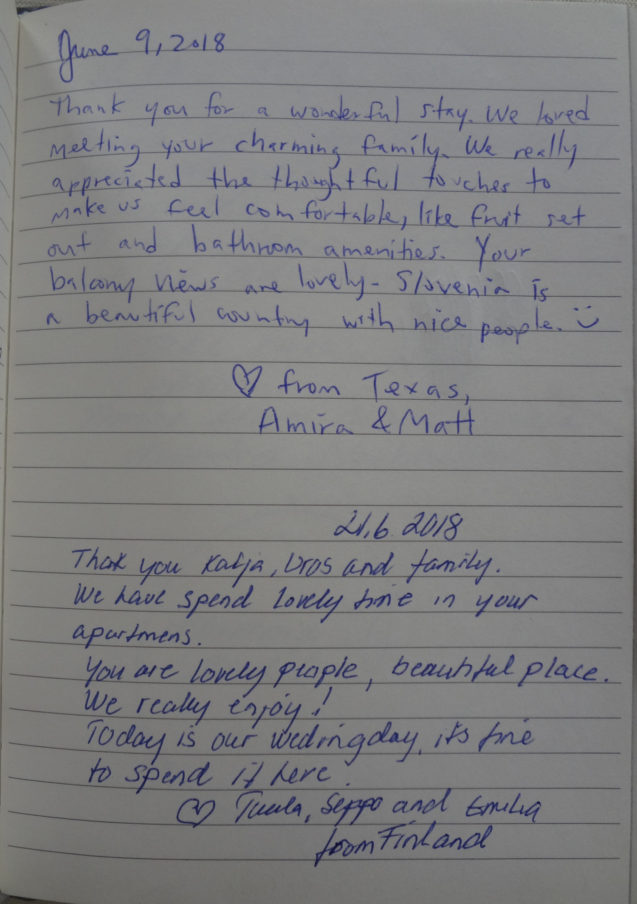 June 9, 2018
Thank you for a wonderful stay. We loved
meeting your charming family. We really
appreciated the thoughtful touches to
make us feel comfortable, like fruit set
out and bathroom amenities. Your
balcony views are lovely - Slovenia is
a beautiful country with nice people. :)
♡ from Texas,
Amira & Matt
21.6 2018
Thak you Katja, Uros and family.
We have spend lovely time in your
apartmens.
You are lovely people, beautiful place.
We really enjoy!
Today is our wedningday, it's fine
to spend it here.
♡ Tuula, Seppo and Emilia
from Finland